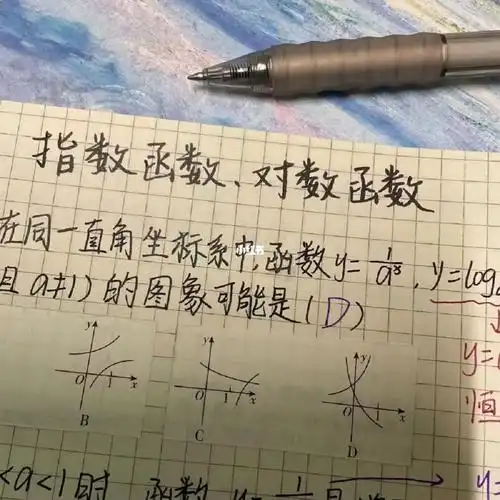 指数函数、对数函数
在同一直角坐标系中,函数 y=1/aˣ, y=log
且 a≠1) 的图象可能是 (D)
y=
恒
y
O
1
x
B
y
O
1
x
C
y
O
x
D
<a<1时 函数 y=1
y
小红书